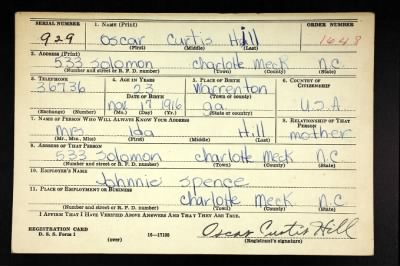 SERIAL NUMBER 1. NAME (Print) ORDER NUMBER
929 Oscar Curtis Hill 1648
(First) (Middle) (Last)
2. ADDRESS (Print)
533 Solomon Charlotte Meck N.C
(Number and street or R. F. D. number) (Town) (County) (State)
3. TELEPHONE 4. AGE IN YEARS 5. PLACE OF BIRTH 6. COUNTRY OF CITIZENSHIP
36736 23 Warrenton
DATE OF BIRTH (Town or county)
Nov 17 1916 ga. U.S.A
(Exchange) (Number) (Mo.) (Day) (Yr.) (State or country)
7. NAME OF PERSON WHO WILL ALWAYS KNOW YOUR ADDRESS 8. RELATIONSHIP OF THAT PERSON
Mrs Ida Hill mother
(Mr., Mrs., Miss) (First) (Middle) (Last)
9. ADDRESS OF THAT PERSON
533 Solomon Charlotte Meck N.C
(Number and street or R. F. D. number) (Town) (County) (State)
10. EMPLOYER'S NAME
Johnnie Spence
11. PLACE OF EMPLOYMENT OR BUSINESS
Charlotte Meck N.C
(Number and street or R. F. D. number) (Town) (County) (State)
I AFFIRM THAT I HAVE VERIFIED ABOVE ANSWERS AND THAT THEY ARE TRUE.
REGISTRATION CARD
D. S. S. Form 1 (over) 16—17105 Oscar Curtis Hill
(Registrant's signature)